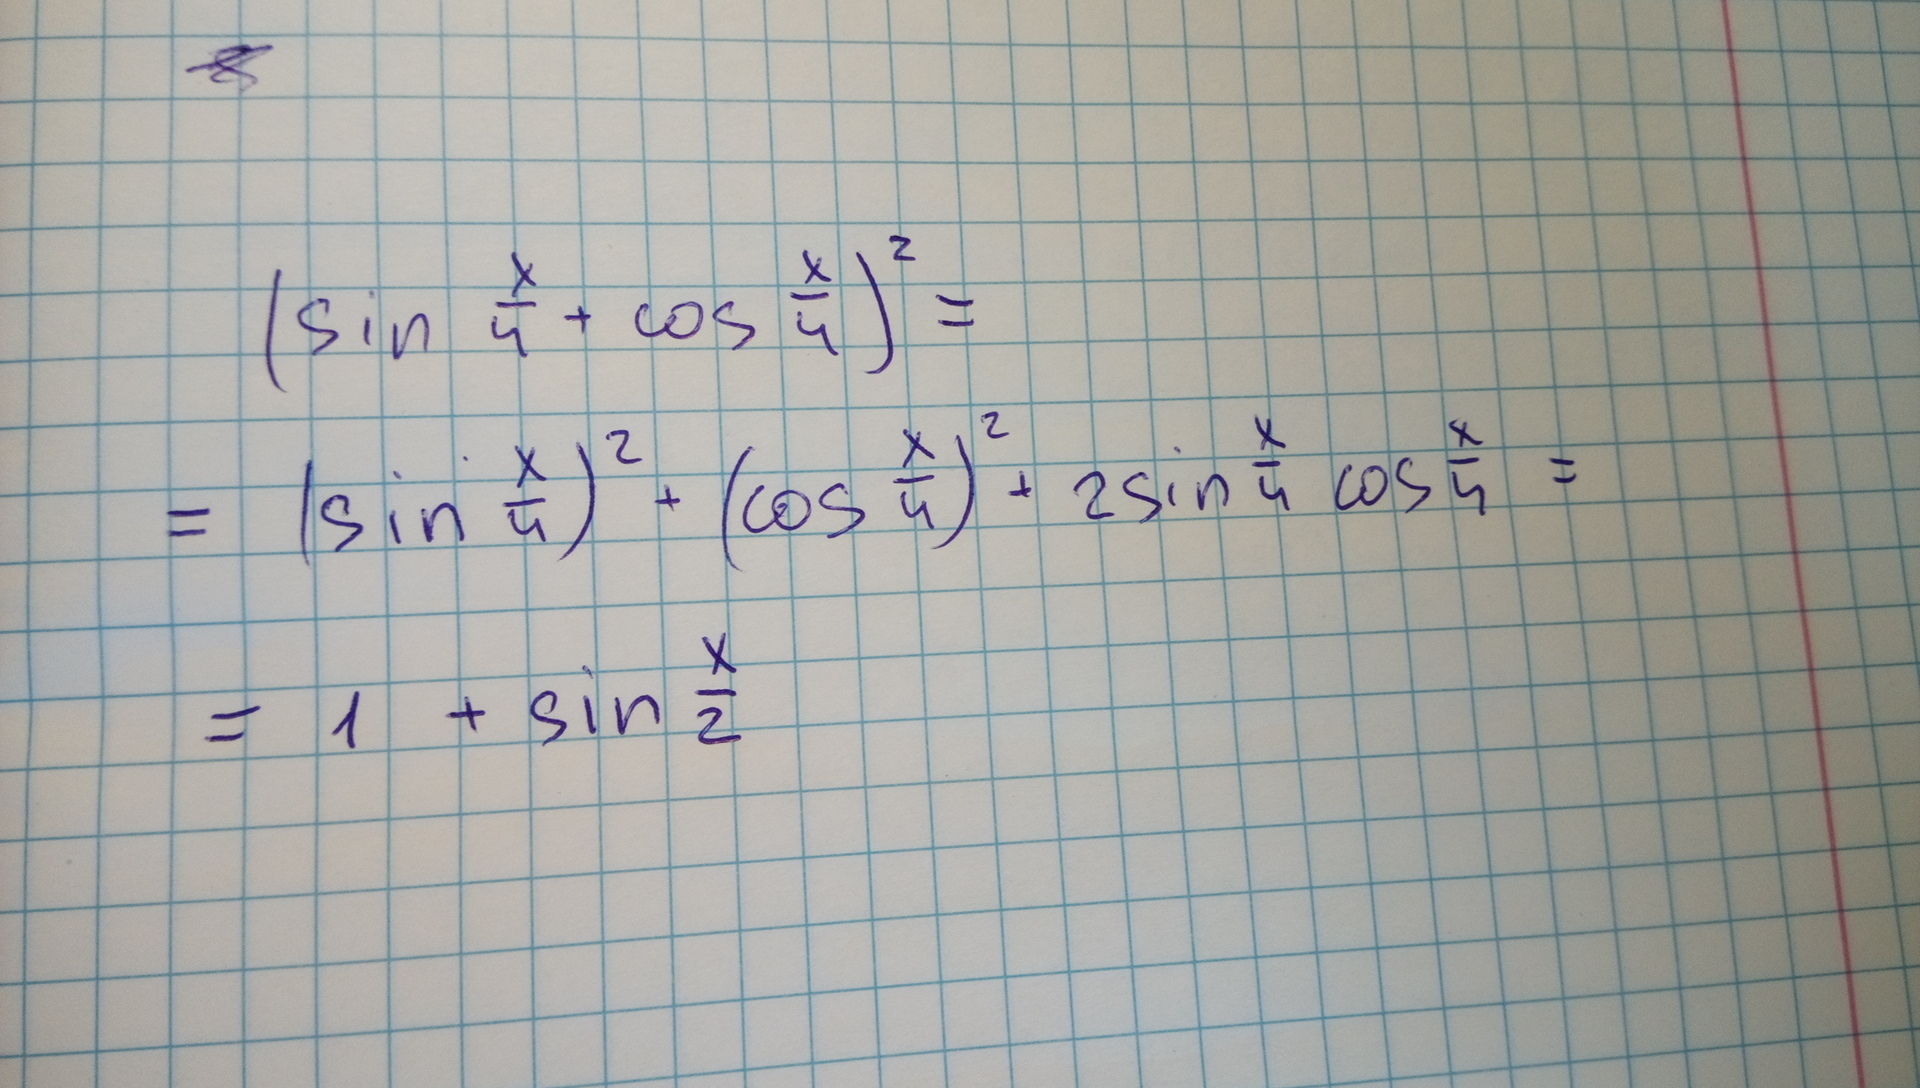 (sin x/4 + cos x/4)² =
= (sin x/4)² + (cos x/4)² + 2sin x/4 cos x/4 =
= 1 + sin x/2